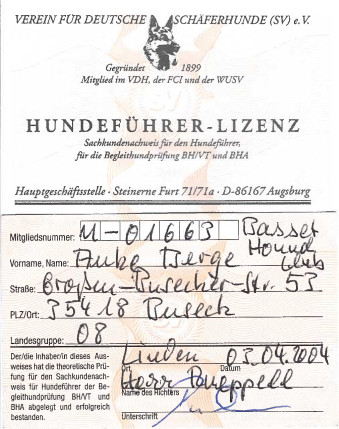 VEREIN FÜR DEUTSCHE SCHÄFERHUNDE (SV) e.V.
Gegründet 1899
Mitglied im VDH, der FCI und der WUSV
HUNDEFÜHRER-LIZENZ
Sachkundenachweis für den Hundeführer,
für die Begleithundprüfung BH/VT und BHA
Hauptgeschäftsstelle · Steinerne Furt 71/71a · D-86167 Augsburg
Mitgliedsnummer: M-01663 Basset
Hound
Club
Vorname, Name: Anke Berge
Straße: Großen-Busecker-Str. 53
PLZ/Ort: 35418 Buseck
Landesgruppe: 08
Der/die Inhaber/in dieses Aus-
weises hat die theoretische Prü-
fung für den Sachkundenach-
weis für Hundeführer der Be-
gleithundprüfung BH/VT und
BHA abgelegt und erfolgreich
bestanden.
Linden 03.04.2004
Ort Datum
Herr
Name des Richters
Unterschrift